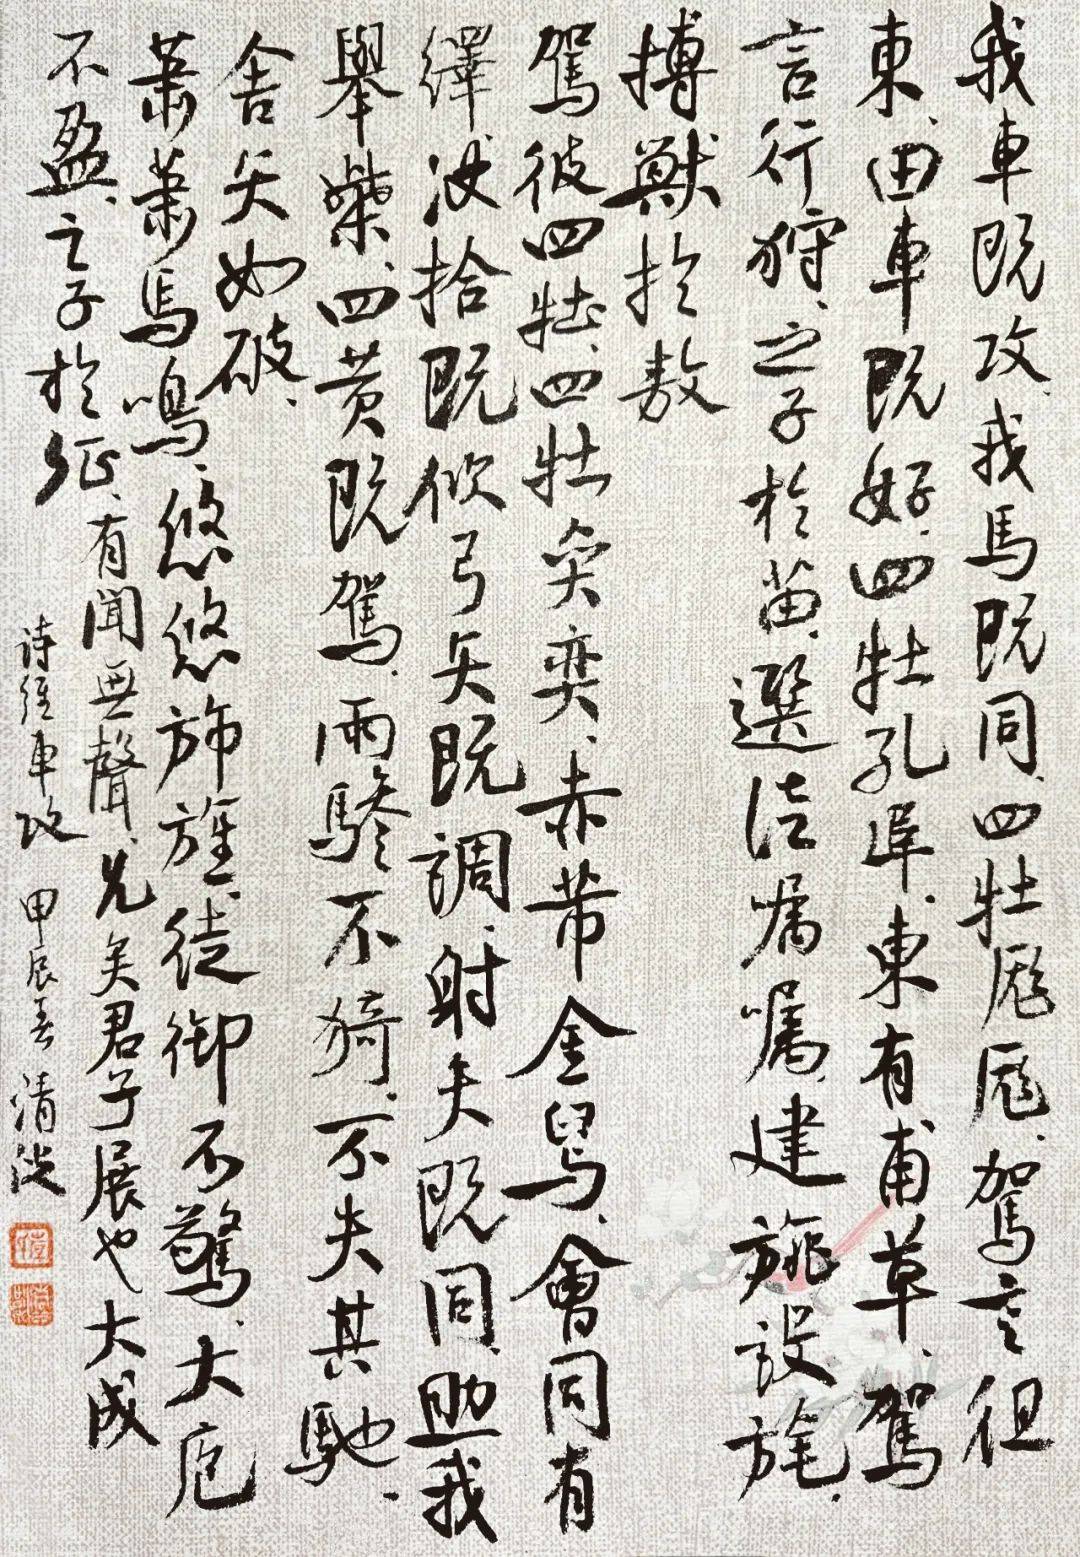 我車既攻、我馬既同、四牡龐龐、駕言徂
東、田車既好、四牡孔阜、東有甫草、駕
言行狩、之子於苗、選徒囂囂、建旐設旄、
搏獸於敖
駕彼四牡、四牡奕奕、赤芾金舄、會同有
繹、決拾既佽弓矢既調、射夫既同、助我
舉柴、四黃既駕、兩驂不猗、不失其馳、
舍矢如破、
蕭蕭馬鳴、悠悠旆旌、徒御不驚、大庖
不盈、之子於征、有聞無聲、允矣君子展也大成
詩經車攻 甲辰春 清